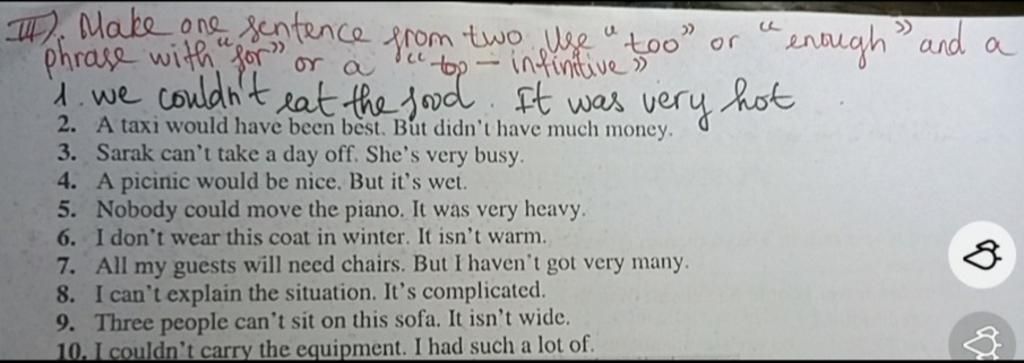 III). Make one sentence from two. Use "too" or "enough" and a
phrase with "for" or a "too - infinitive"
1. we couldn't eat the food. It was very hot
2. A taxi would have been best. But didn't have much money.
3. Sarak can't take a day off. She's very busy.
4. A picinic would be nice. But it's wet.
5. Nobody could move the piano. It was very heavy.
6. I don't wear this coat in winter. It isn't warm.
7. All my guests will need chairs. But I haven't got very many.
8. I can't explain the situation. It's complicated.
9. Three people can't sit on this sofa. It isn't wide.
10. I couldn't carry the equipment. I had such a lot of.